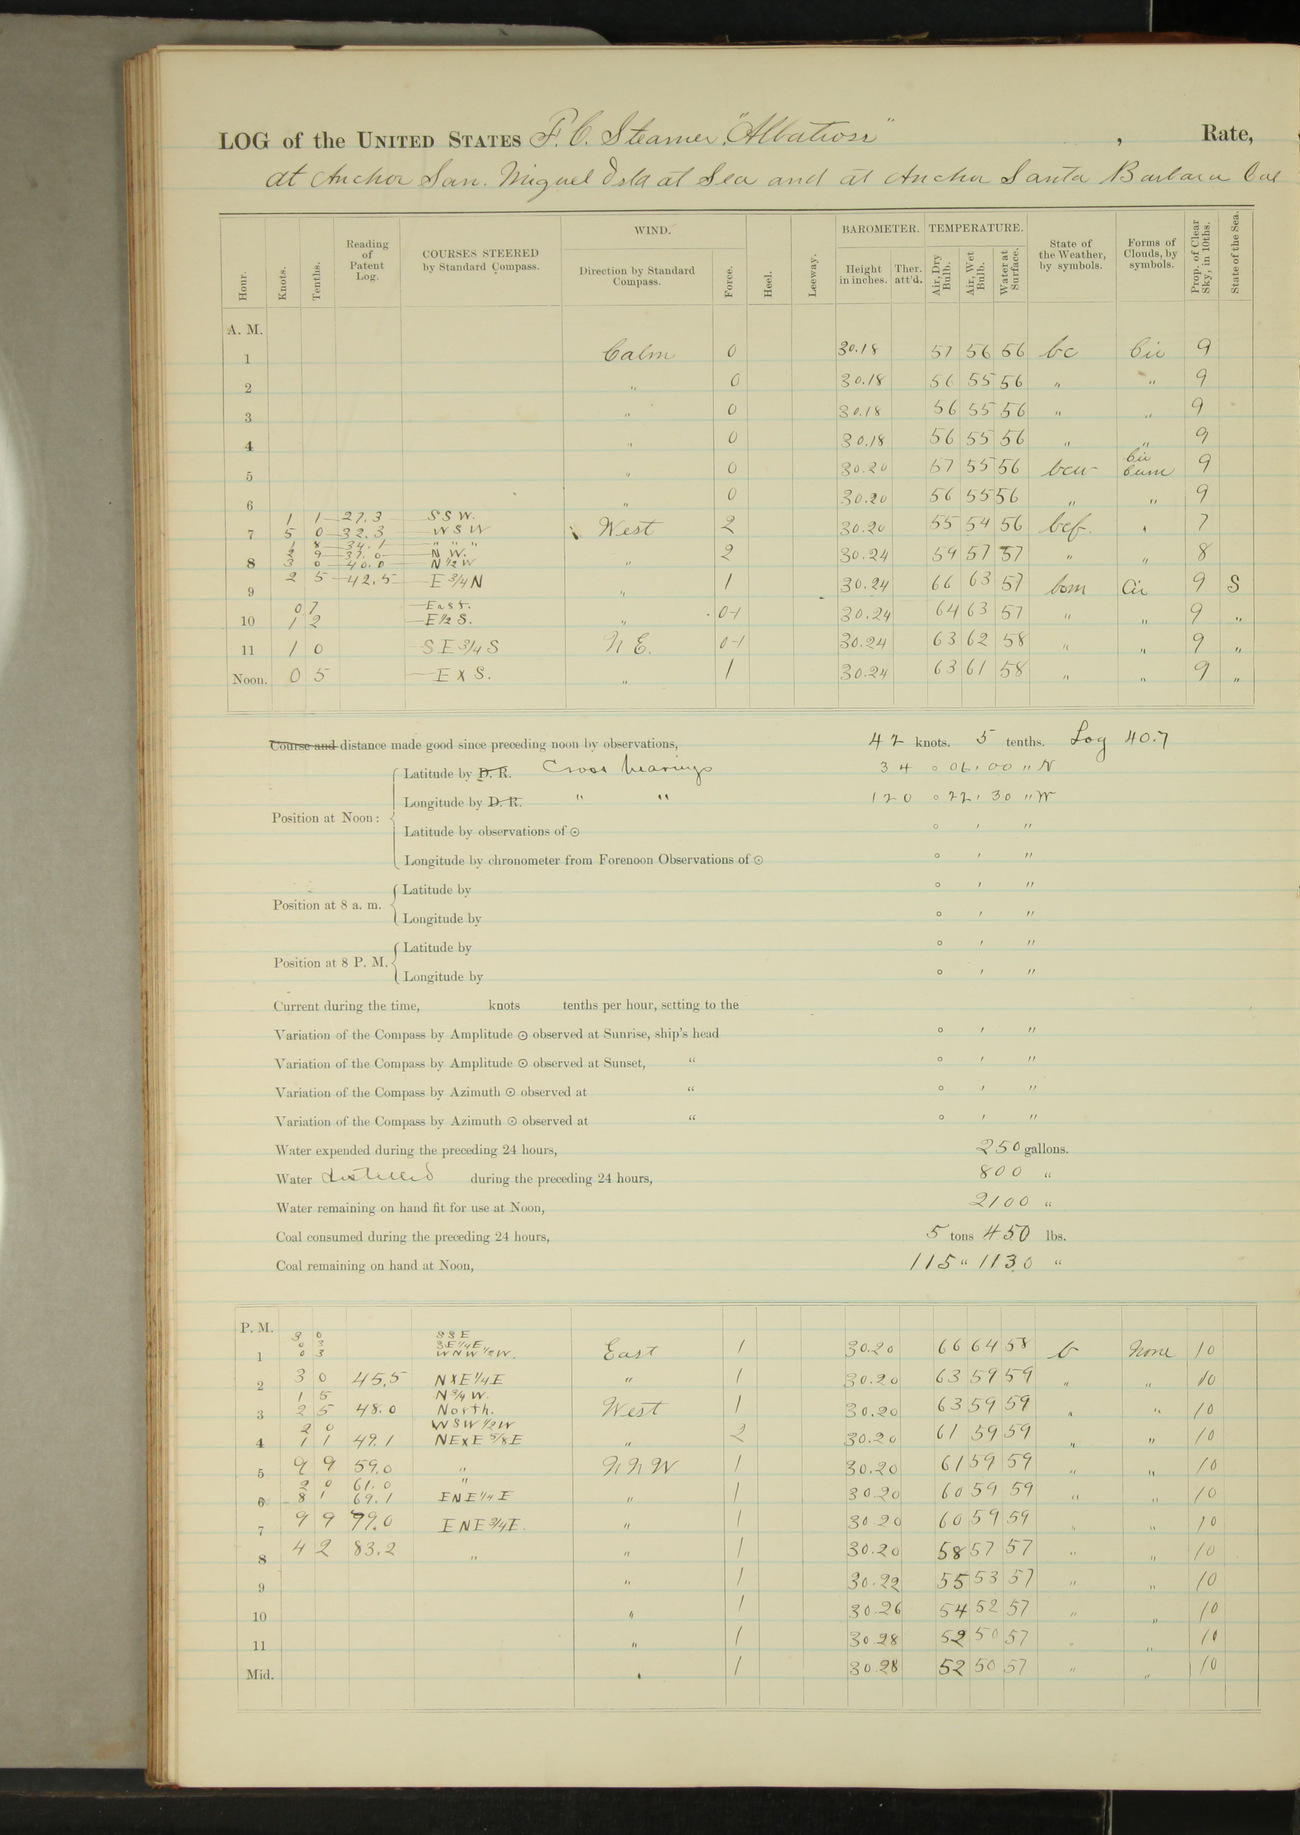 LOG of the UNITED STATES F. C. Steamer "Albatross" , Rate,
at Anchor San. Miguel Isld at Sea and at Anchor Santa Barbara Cal
Hour. Knots. Tenths. Reading of Patent Log. COURSES STEERED by Standard Compass. WIND. Direction by Standard Compass. Force. Heel. Leeway. BAROMETER. Height in inches. Ther. att'd. TEMPERATURE. Air, Dry Bulb. Air, Wet Bulb. Water at Surface. State of the Weather, by symbols. Forms of Clouds, by symbols. Prop. of Clear Sky, in 10ths. State of the Sea.
A. M.
1 Calm 0 30.18 57 56 56 bc Cir 9
2 " 0 30.18 56 55 56 " " 9
3 " 0 30.18 56 55 56 " " 9
4 " 0 30.18 56 55 56 " " 9
5 " 0 30.20 57 55 56 bcw Cir Cum 9
6 " 0 30.20 56 55 56 " " 9
1 1 27.3 SSW.
7 5 0 32.3 WSW West 2 30.20 55 54 56 bcf. " 7
1 8 34.1 " " "
2 9 37.0 N W.
8 3 0 40.0 N 1/2 W " 2 30.24 59 57 57 " " 8
9 2 5 42.5 E 3/4 N " 1 30.24 66 63 57 bcm Cir 9 S
0 7 East.
10 1 2 E 1/2 S. " 0-1 30.24 64 63 57 " " 9 "
11 1 0 SE 3/4 S N E. 0-1 30.24 63 62 58 " " 9 "
Noon. 0 5 E X S. " 1 30.24 63 61 58 " " 9 "
Course and distance made good since preceding noon by observations, 42 knots. 5 tenths. Log 40.7
Position at Noon: Latitude by D. R. Cross bearings 34 ° 01 ' 00 " N
Longitude by D. R. " " 120 ° 22 ' 30 " W
Latitude by observations of ☉ ° ' "
Longitude by chronometer from Forenoon Observations of ☉ ° ' "
Position at 8 a. m. Latitude by ° ' "
Longitude by ° ' "
Position at 8 P. M. Latitude by ° ' "
Longitude by ° ' "
Current during the time, knots tenths per hour, setting to the
Variation of the Compass by Amplitude ☉ observed at Sunrise, ship's head ° ' "
Variation of the Compass by Amplitude ☉ observed at Sunset, " ° ' "
Variation of the Compass by Azimuth ☉ observed at " ° ' "
Variation of the Compass by Azimuth ☉ observed at " ° ' "
Water expended during the preceding 24 hours, 250 gallons.
Water distilled during the preceding 24 hours, 800 "
Water remaining on hand fit for use at Noon, 2100 "
Coal consumed during the preceding 24 hours, 5 tons 450 lbs.
Coal remaining on hand at Noon, 115 " 1130 "
P. M.
3 0 SSE
0 3 SE 1/4 E
1 0 3 WNW 1/2 W. East 1 30.20 66 64 58 b None 10
2 3 0 45.5 NXE 1/4 E " 1 30.20 63 59 59 " " 10
1 5 N 3/4 W.
3 2 5 48.0 North. West 1 30.20 63 59 59 " " 10
2 0 WSW 1/2 W
4 1 1 49.1 NEXE 3/8 E " 2 30.20 61 59 59 " " 10
5 9 9 59.0 " NNW 1 30.20 61 59 59 " " 10
2 0 61.0 "
6 8 1 69.1 ENE 1/4 E " 1 30.20 60 59 59 " " 10
7 9 9 79.0 ENE 3/4 E. " 1 30.20 60 59 59 " " 10
8 4 2 83.2 " " 1 30.20 58 57 57 " " 10
9 " 1 30.22 55 53 57 " " 10
10 " 1 30.26 54 52 57 " " 10
11 " 1 30.28 52 50 57 " " 10
Mid. " 1 30.28 52 50 57 " " 10